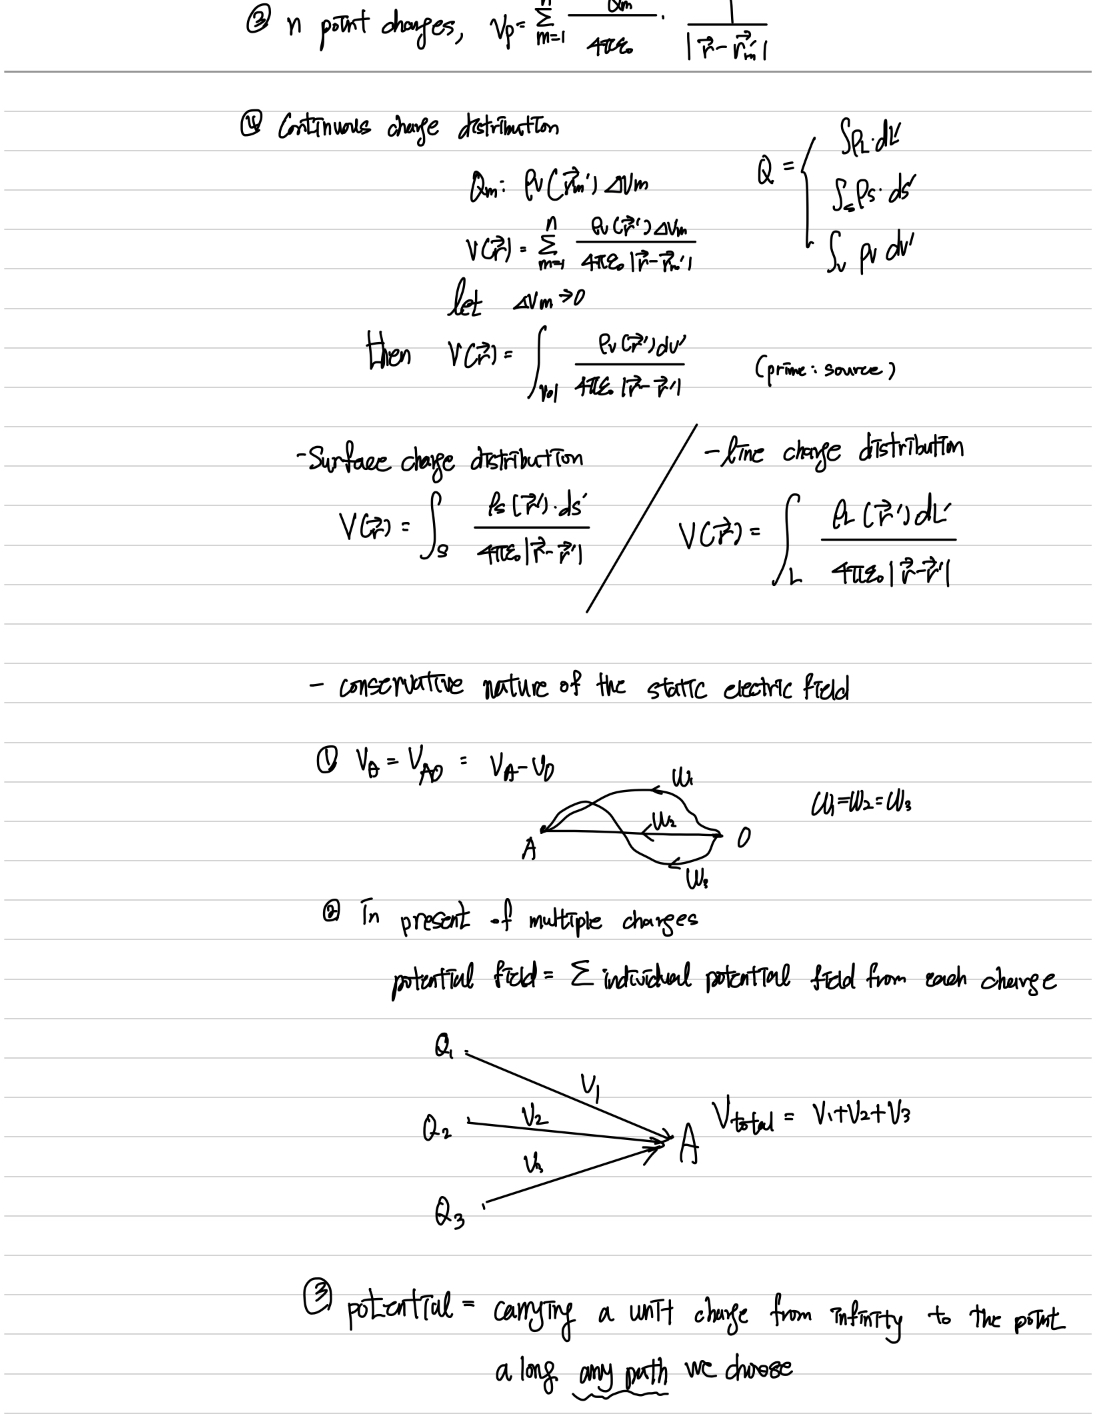 ③ n point charges, Vp = Σ_{m=1}^{n} Qm/4πε₀ · 1/|r⃗ - r⃗m'|
④ Continuous charge distribution
Qm: ρv(r⃗m') ΔVm
Q = { ∫ρL·dL'
∫s ρs·ds'
∫v ρv dv'
V(r⃗) = Σ_{m=1}^{n} ρv(r⃗')ΔVm / 4πε₀|r⃗ - r⃗m'|
let ΔVm → 0
then V(r⃗) = ∫vol ρv(r⃗')dv' / 4πε₀|r⃗ - r⃗'| (prime: source)
- Surface charge distribution / - line charge distribution
V(r⃗) = ∫s ρs(r⃗')·ds' / 4πε₀|r⃗ - r⃗'|
V(r⃗) = ∫L ρL(r⃗')dL' / 4πε₀|r⃗ - r⃗'|
- conservative nature of the static electric field
① VA = VAO = VA - VO
W1
W2
W3
A
O
W1 = W2 = W3
② In present of multiple charges
potential field = Σ individual potential field from each charge
Q1
V1
Q2
V2
Q3
V3
A
Vtotal = V1+V2+V3
③ potential = carrying a unit charge from infinity to the point
a long any path we choose